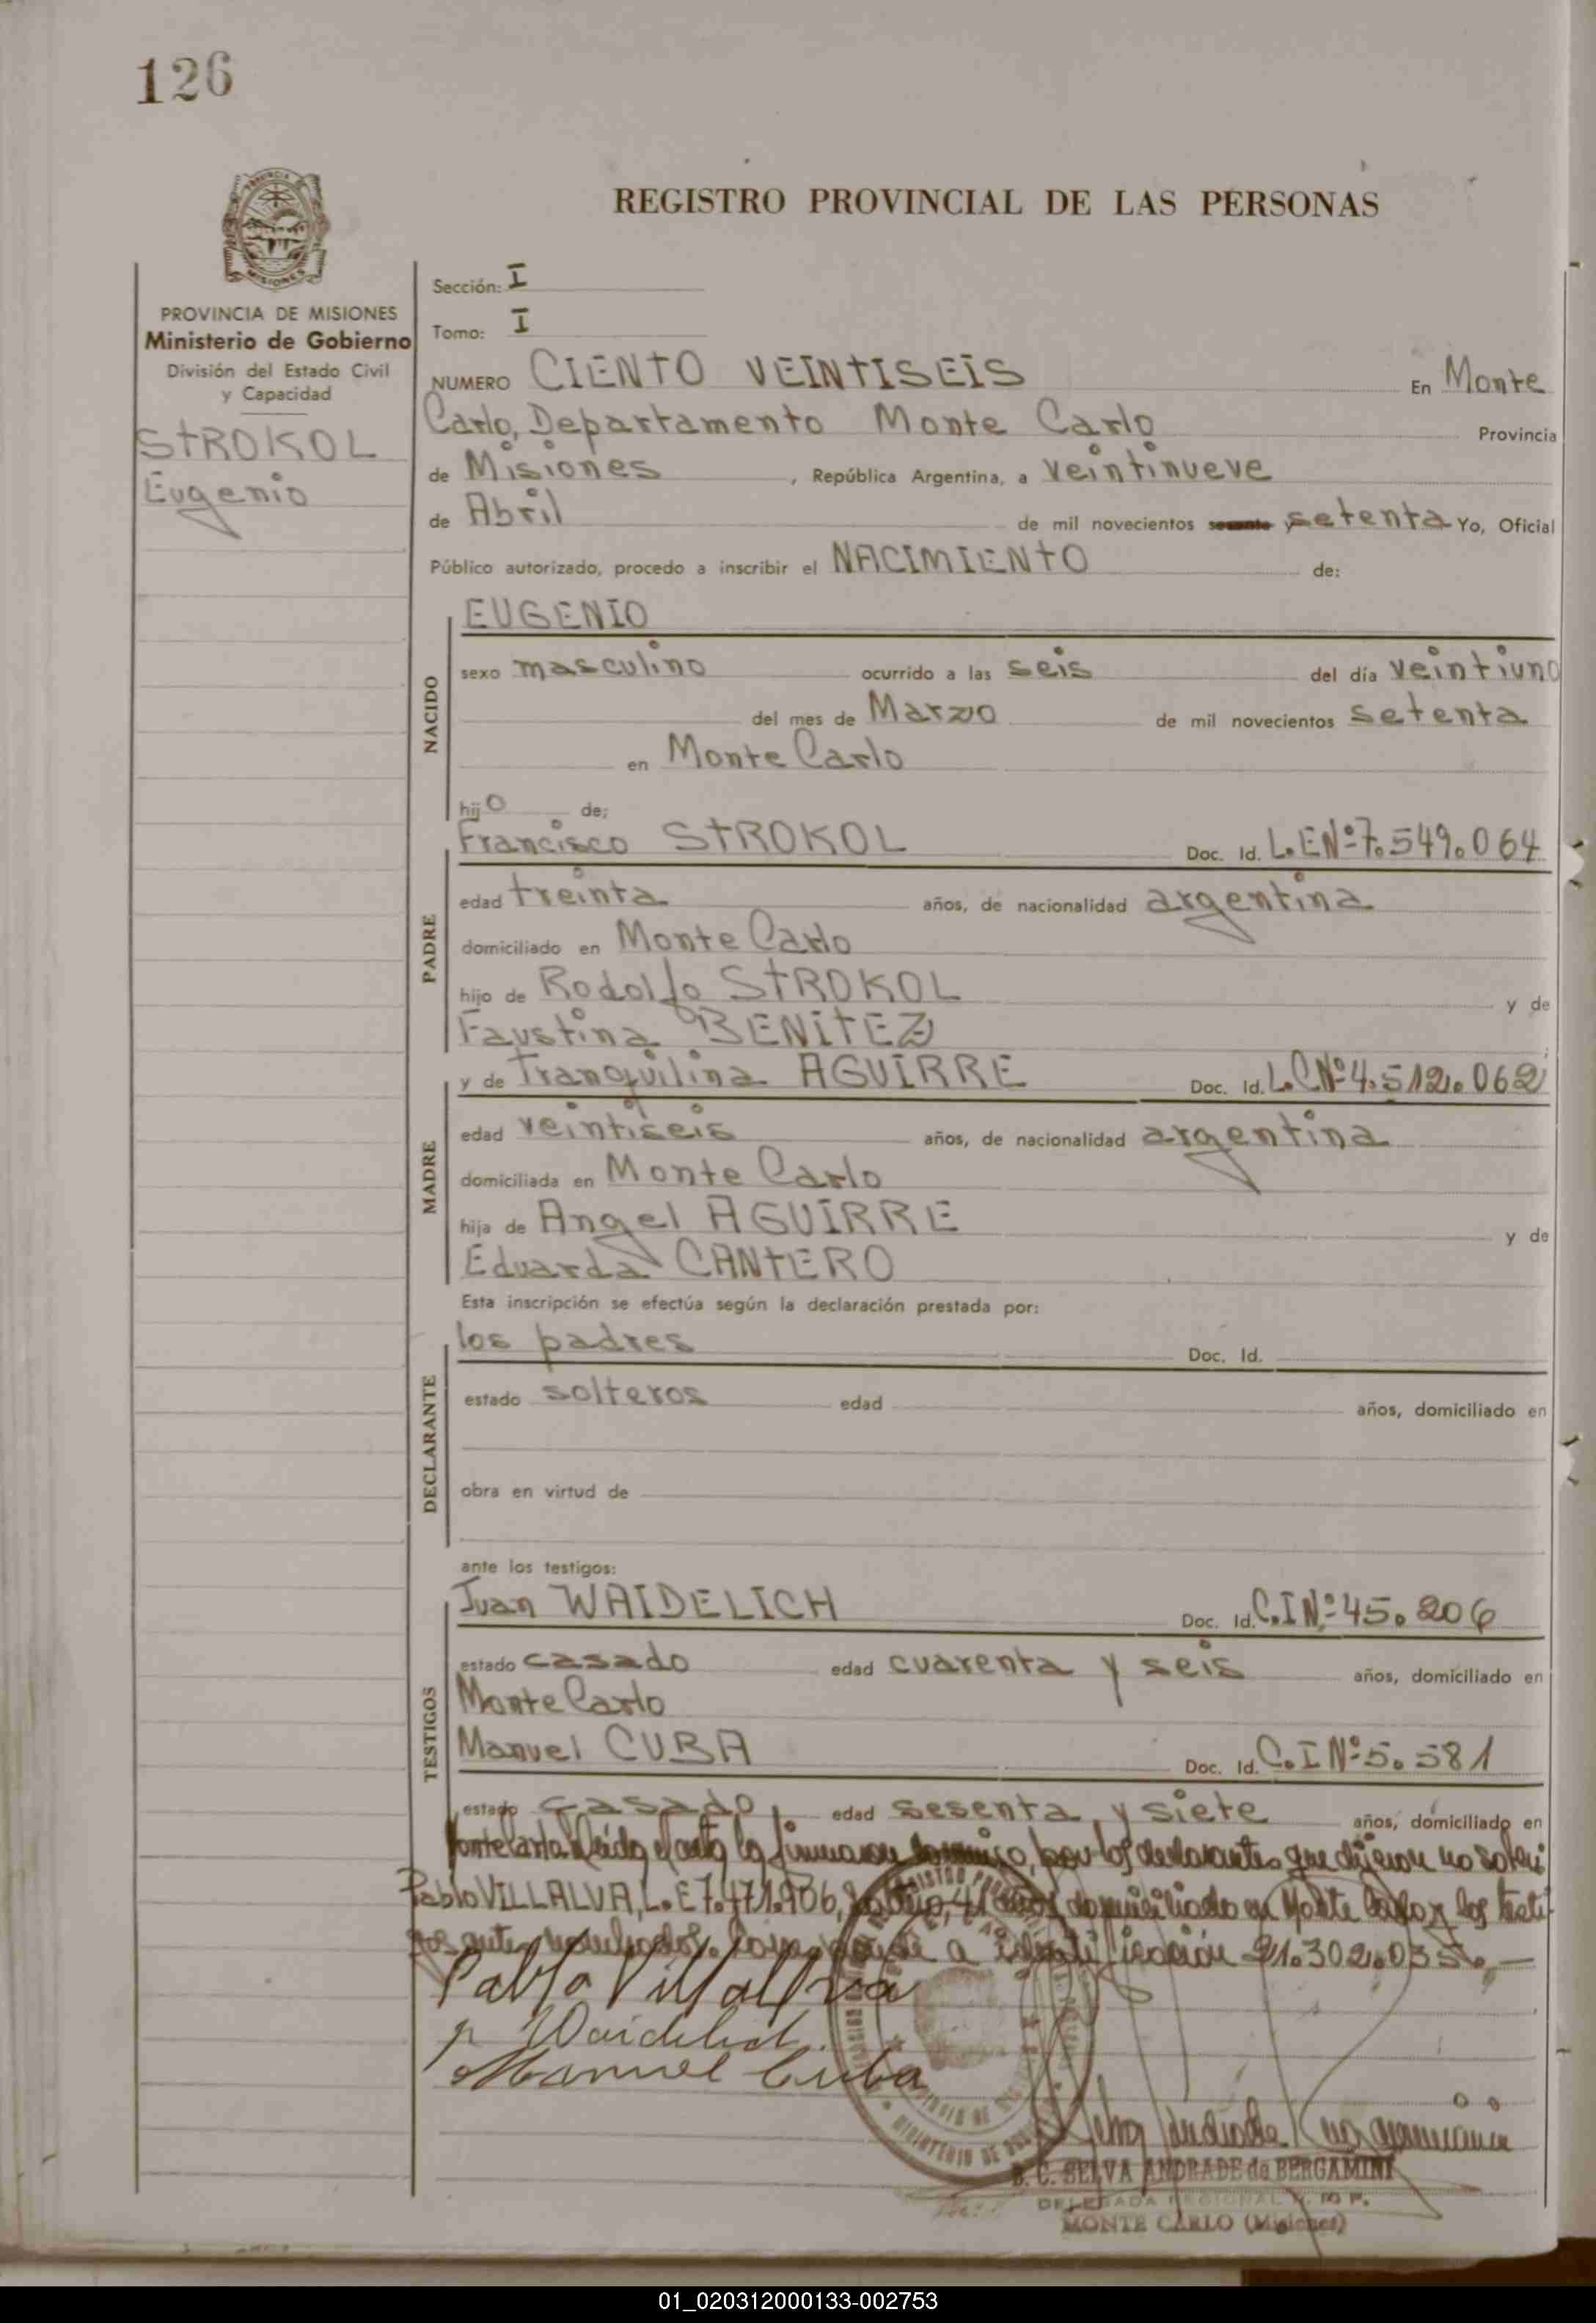 126
REGISTRO PROVINCIAL DE LAS PERSONAS
PROVINCIA DE MISIONES
Ministerio de Gobierno
División del Estado Civil
y Capacidad
STROKOL
Eugenio
Sección: I
Tomo: I
NUMERO CIENTO VEINTISEIS En Monte
Carlo, Departamento Monte Carlo Provincia
de Misiones, República Argentina, a veintinueve
de Abril de mil novecientos setenta Yo, Oficial
Público autorizado, procedo a inscribir el NACIMIENTO de:
NACIDO
EUGENIO
sexo masculino ocurrido a las seis del día veintiuno
del mes de Marzo de mil novecientos setenta
en Monte Carlo
hijo de;
PADRE
Francisco STROKOL Doc. Id. L.E Nº 7.549.064
edad treinta años, de nacionalidad argentina
domiciliado en Monte Carlo
hijo de Rodolfo STROKOL y de
Faustina BENITEZ
MADRE
y de Tranquilina AGUIRRE Doc. Id. L.C Nº 4.512.062
edad veintiseis años, de nacionalidad argentina
domiciliada en Monte Carlo
hija de Angel AGUIRRE y de
Eduarda CANTERO
Esta inscripción se efectúa según la declaración prestada por:
DECLARANTE
los padres Doc. Id.
estado solteros edad años, domiciliado en
obra en virtud de
ante los testigos:
TESTIGOS
Juan WAIDELICH Doc. Id. C.I Nº 45.206
estado casado edad cuarenta y seis años, domiciliado en
Monte Carlo
Manuel CUBA Doc. Id. C.I Nº 5.581
estado casado edad sesenta y siete años, domiciliado en
Monte Carlo. Leída el acta la firmaron conmigo, por los declarantes que dijeron no saber
Pablo VILLALVA, L.E 7.471.906, domiciliado en Monte Carlo y los testi
gos antes nombrados. a identificación 21.302.035.-
Pablo Villalva
Waidelich
Manuel Cuba
B. C. SELVA ANDRADE de BERGAMINI
DELEGADA REGIONAL R. P.
MONTE CARLO (Misiones)
01_020312000133-002753